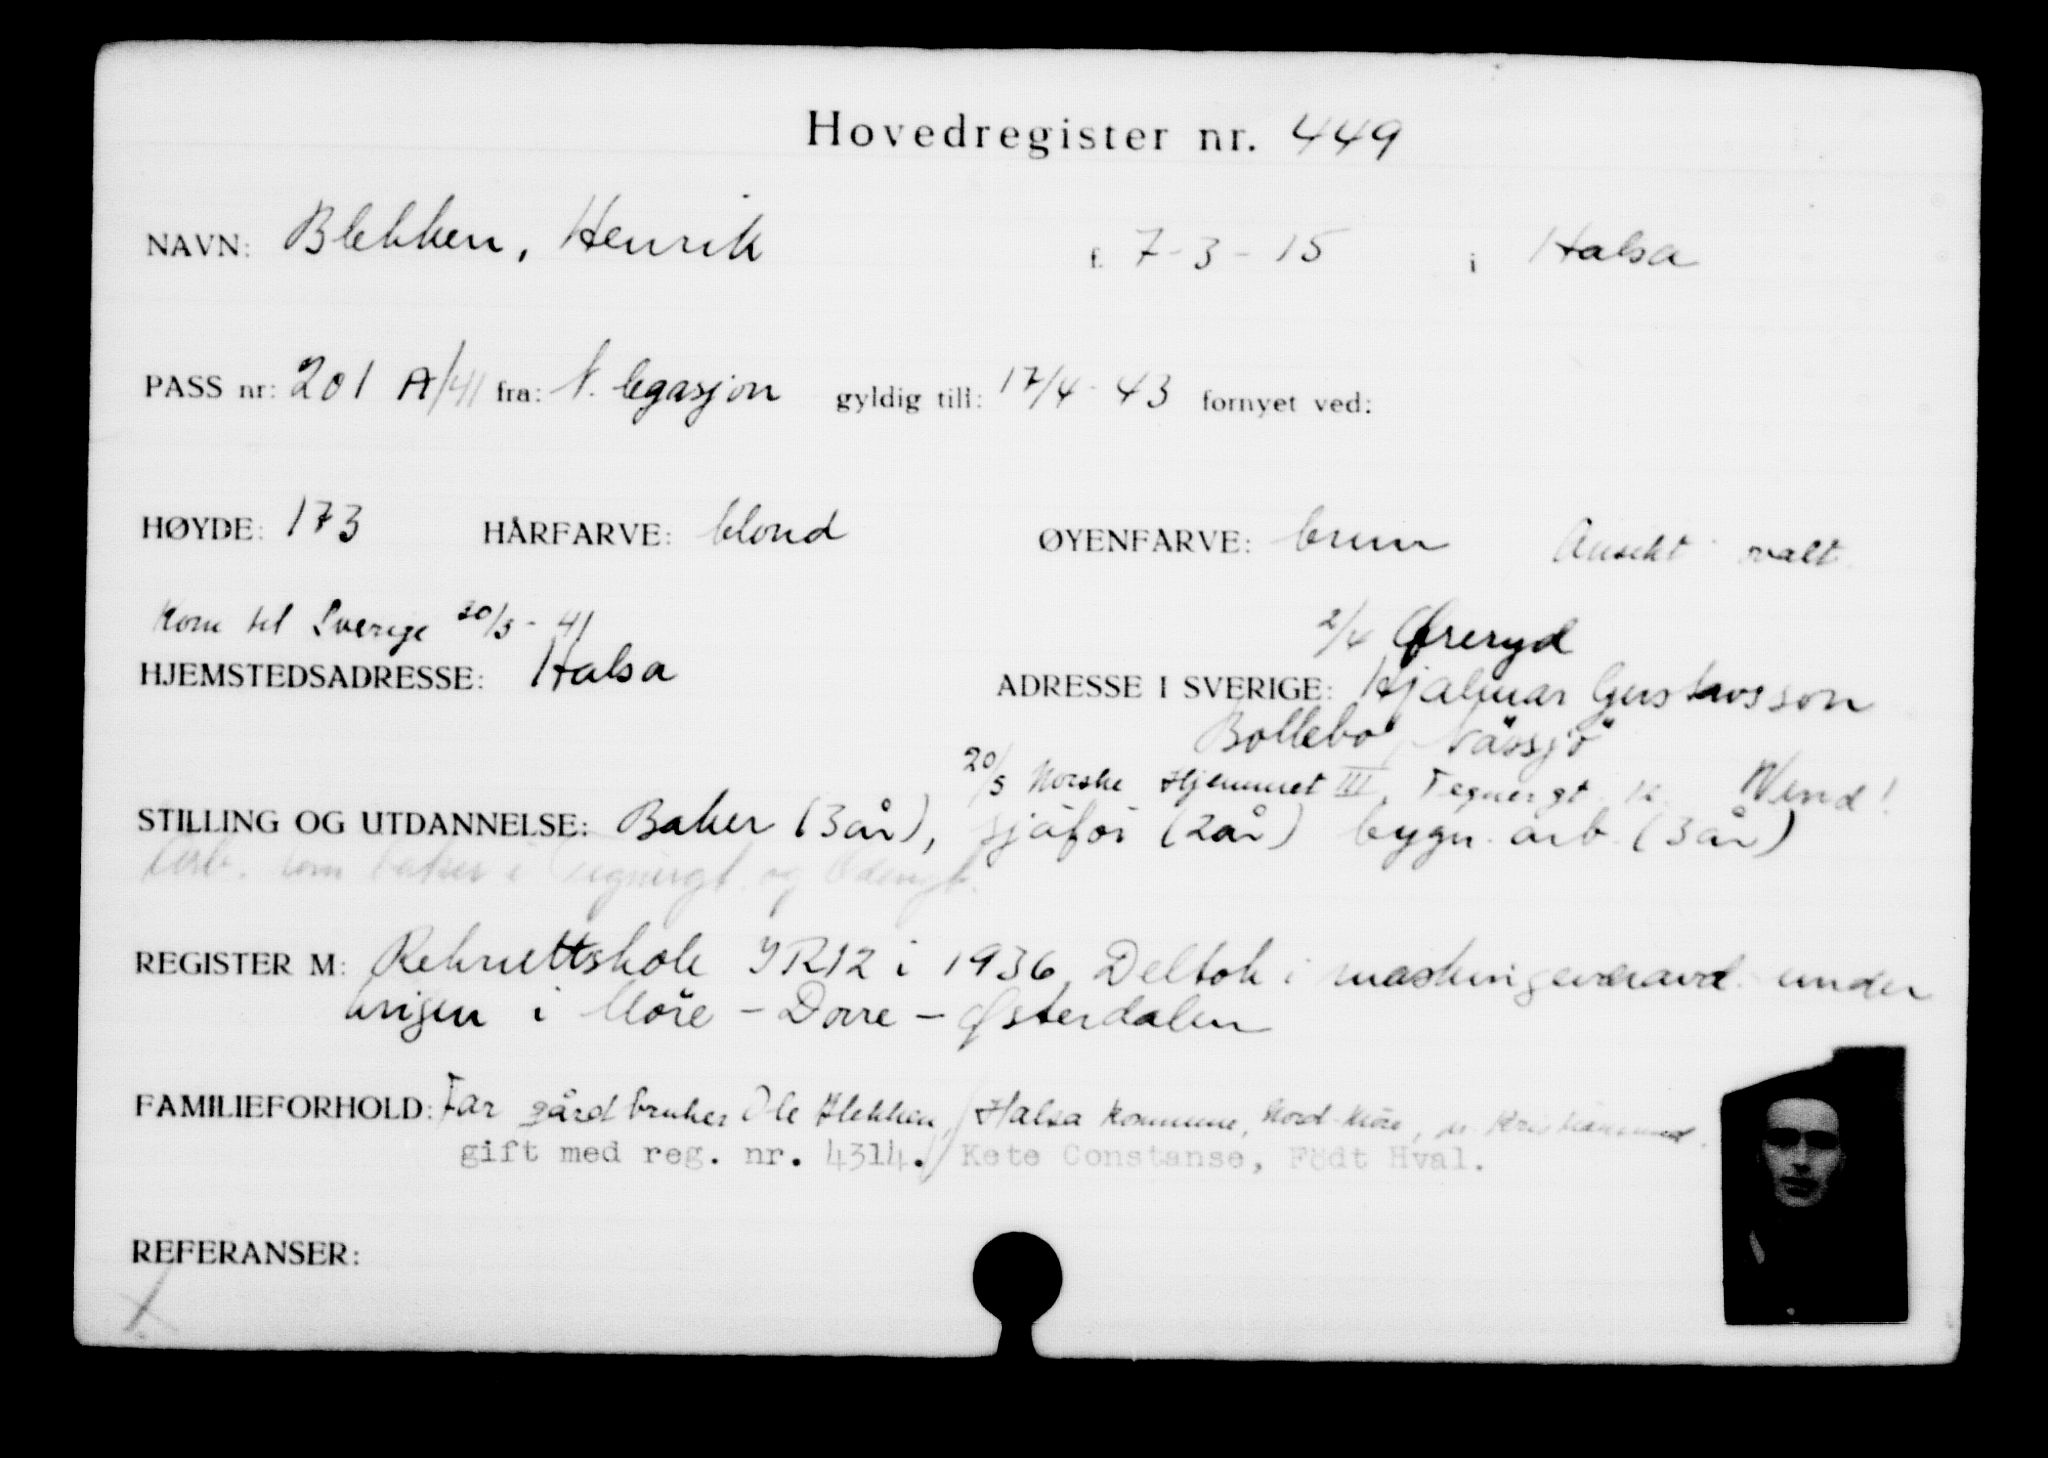 Hovedregister nr. 449
NAVN: Blekken, Henrik f. 7-3-15 i Halsa
PASS nr: 201 A/41 fra: N. legasjon gyldig till: 17/4-43 fornyet ved:
HØYDE: 173 HÅRFARVE: blond ØYENFARVE: brun Ansikt ovalt.
Kom til Sverige 20/3-41
2/4 Øreryd
HJEMSTEDSADRESSE: Halsa ADRESSE I SVERIGE: Hjalmar Gustavsson
Bollebo, Nässjö
20/5 Norske Hjemmet III, Tegnergt. Vend!
STILLING OG UTDANNELSE: Baker (3 år), sjåfør (2 år) bygn. arb. (3 år)
Arb. som baker i Tegnergt. og
REGISTER M: Rekruttskole IR12 i 1936. Deltok i maskingeværavd. under
krigen i Möre - Dovre - Østerdalen
FAMILIEFORHOLD: Far gårdbruker Ole Blekken, Halsa kommune, Nord-Möre, pr. Kristiansund.
gift med reg. nr. 4314./ Kete Constanse, Födt Hval.
REFERANSER: